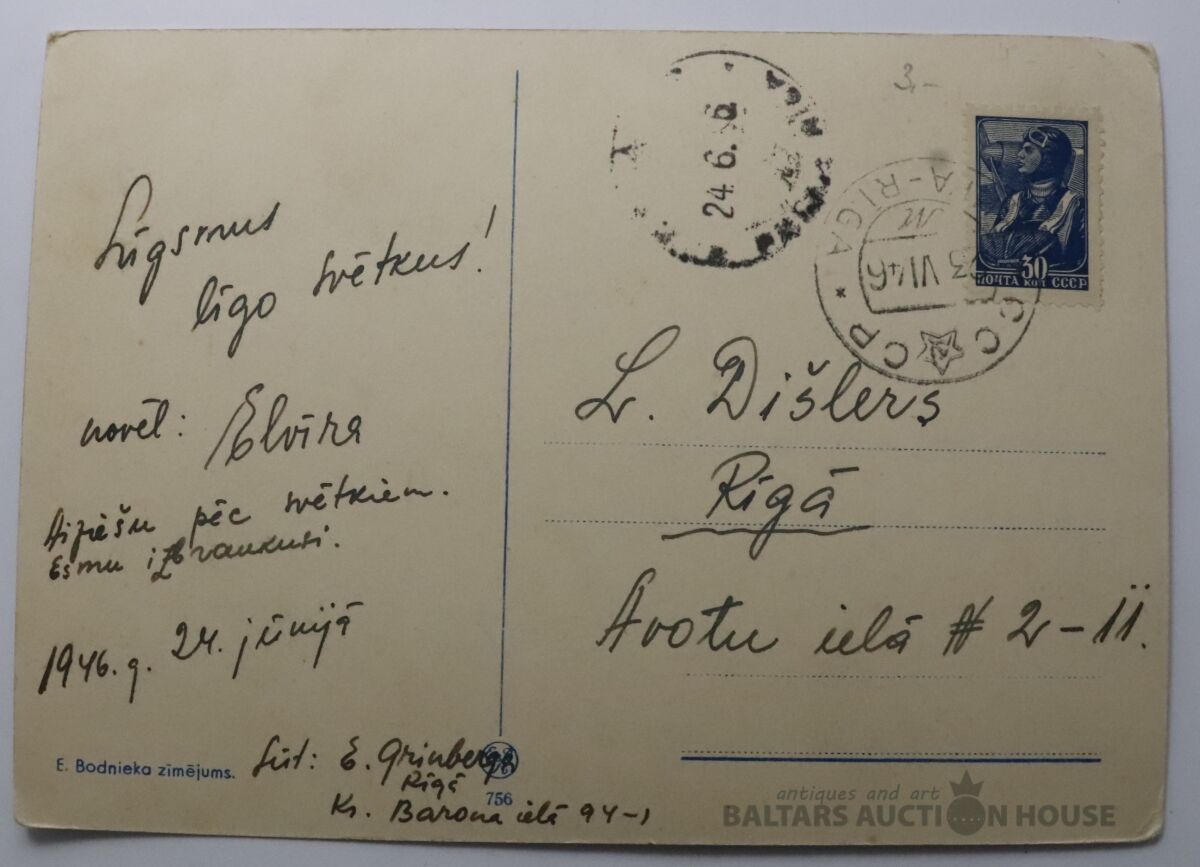 Līgsmus
līgo svētkus!
novēl: Elvīra
Aiziešu pēc svētkiem.
Esmu izbraukusi.
1946. g. 24. jūnijā
E. Bodnieka zīmējums.
Sūt: E. Grinberga
Rīgā
Kr. Barona ielā 94-1
756
3,-
24.6.
RIGA
-RIGA
23 VI 46
СССР
30
ПОЧТА КОП СССР
L. Dišlers
Rīgā
Avotu ielā # 2-11.
antiques and art
BALTARS AUCTION HOUSE